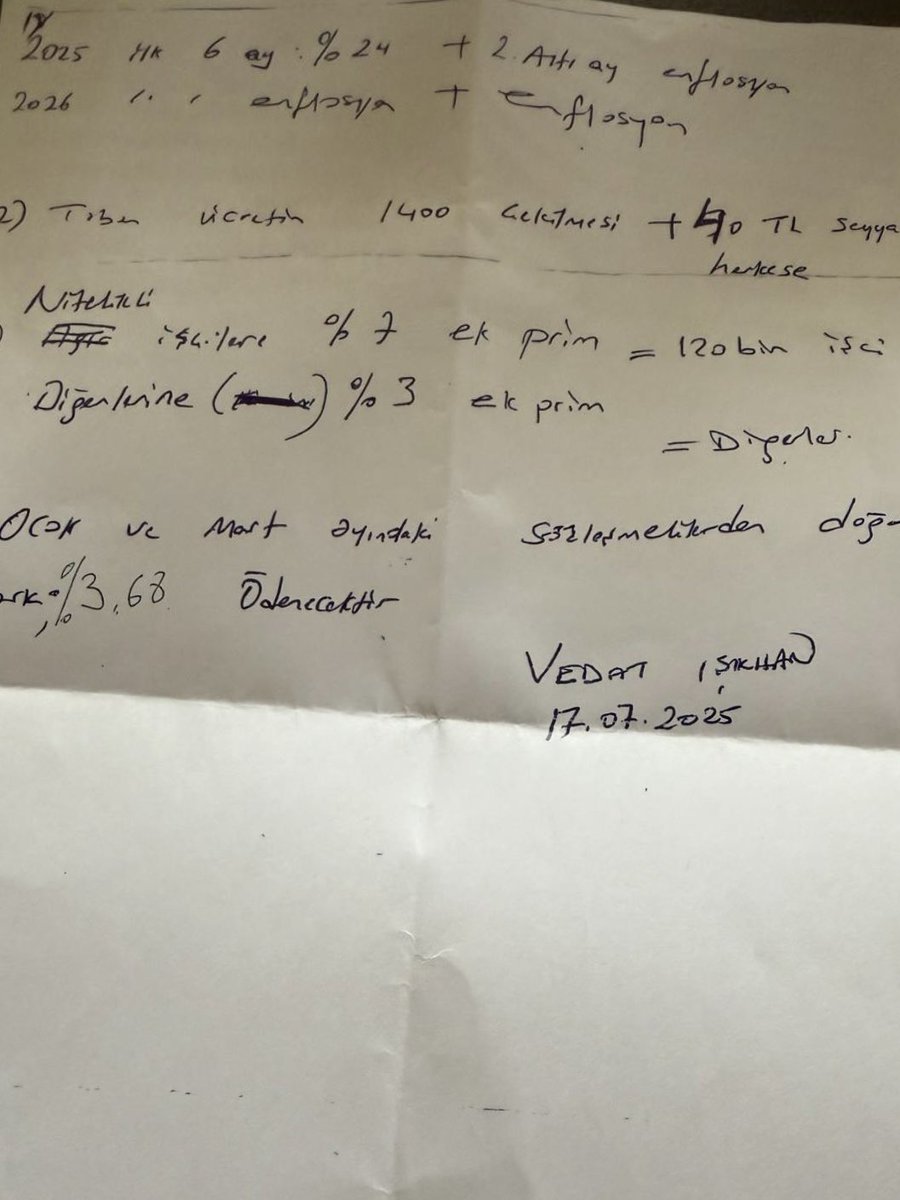 1)
2025 ilk 6 ay : %24 + 2. Altı ay enflasyon
2026 " " enflasya + enflasyon
2) Taban ücretin 1400 çekilmesi + 40 TL seyya
herkese
Nitelikli
) işçilere %7 ek prim = 120 bin işçi
Diğerlerine ( ) %3 ek prim
= Diğerler.
Ocak ve Mart ayındaki sözleşmelilerden doğa
ark %3,68 Ödenecektir
VEDAT IŞIKHAN
17.07.2025